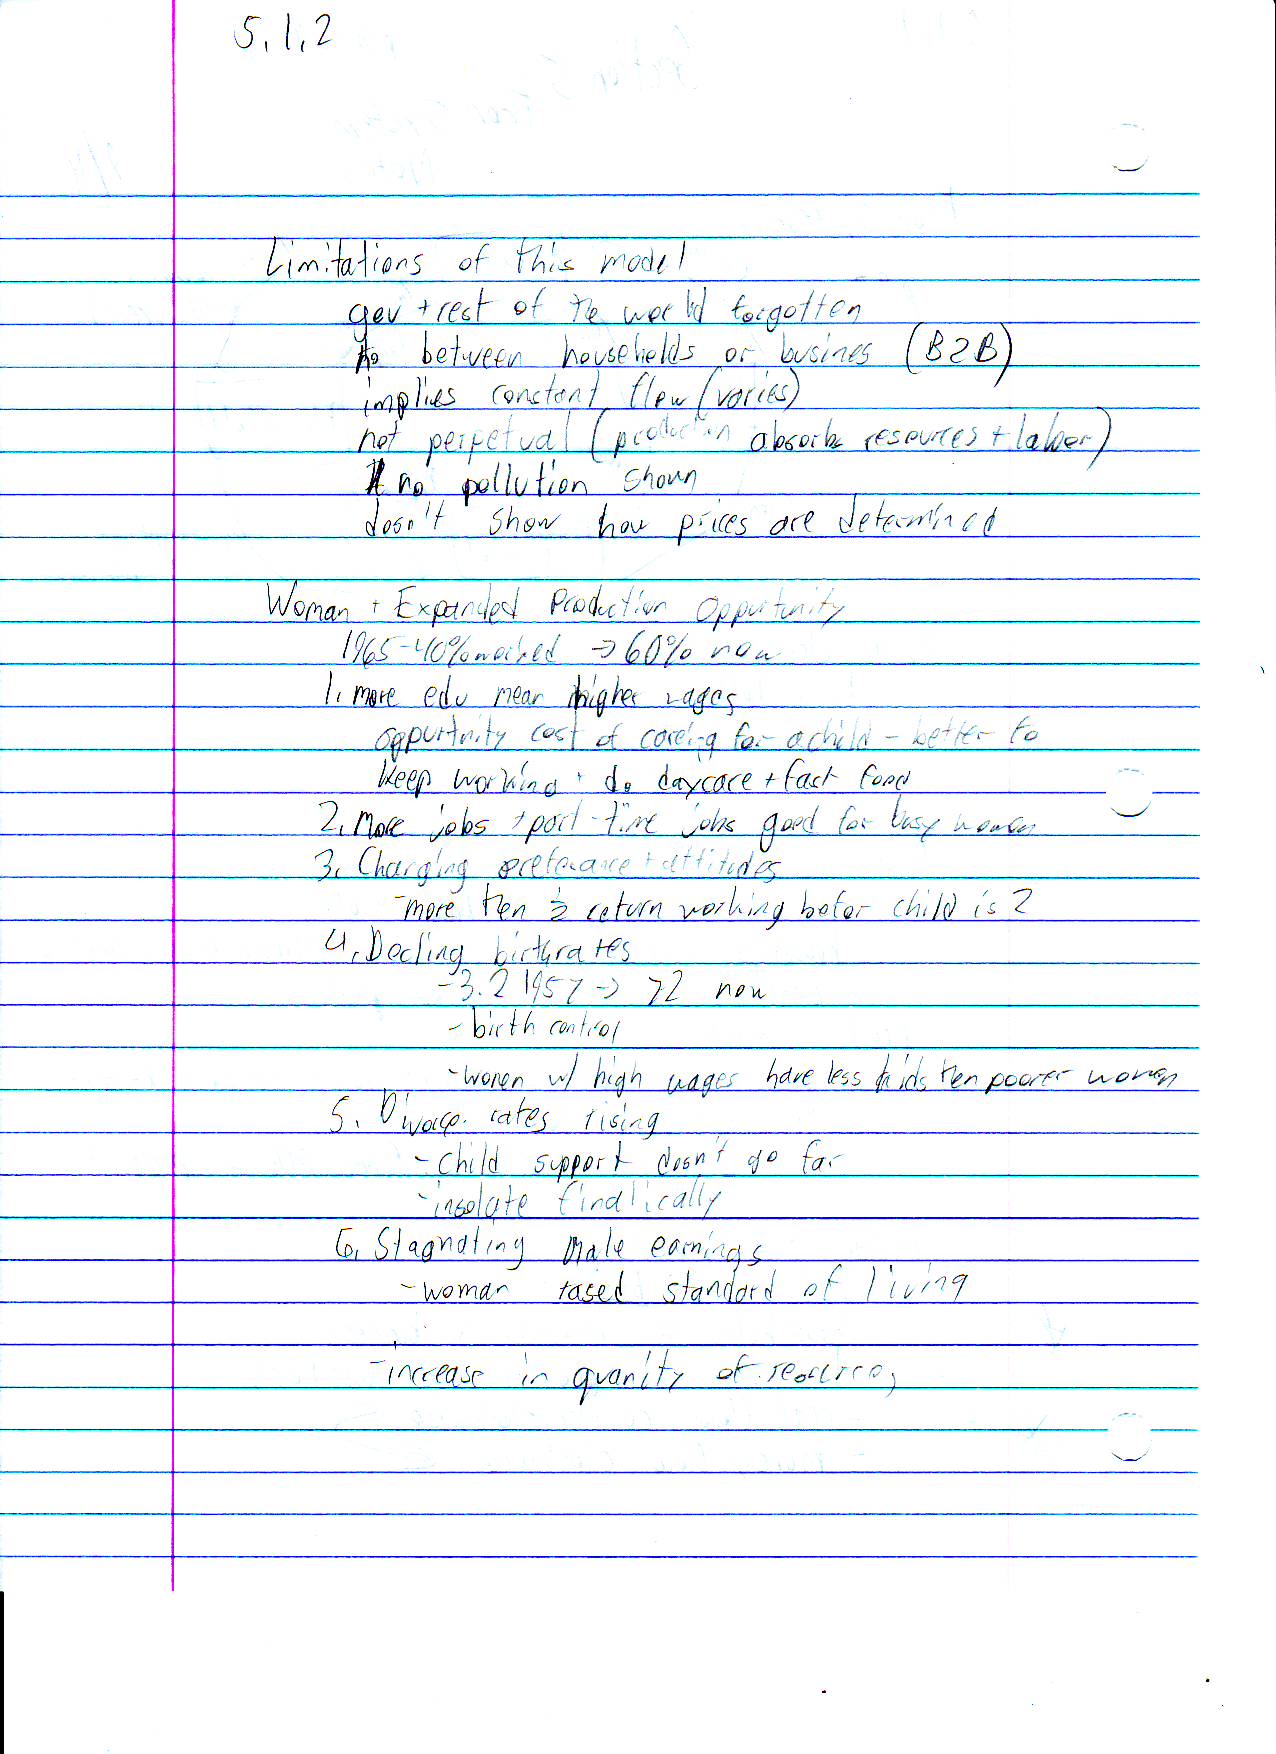 5.1.2
Limitations of this model
gov + rest of the world forgotten
no between households or busines (B2B)
implies constant flow (varies)
not perpetual (production absorbs resources + labor)
no pollution shown
dosn't show how prices are determined
Woman + Expanded Production Oppurtunity
1965-40% worked -> 60% now
1. more edu mean higher wages
oppurtinity cost of careing for a child - better to
keep working + do daycare + fast food
2. More jobs + part-time jobs good for busy women
3. Changing preferance + attitudes
- more then ½ return working befor child is 2
4. Decling birthrates
- 3.2 1957 -> 72 now
- birth control
- women w/ high wages have less kids then poorer women
5. Divorce rates rising
- child support dosn't go far
- insolate findlically
6. Stagnating male earnings
- woman rased standard of living
- increase in quanity of